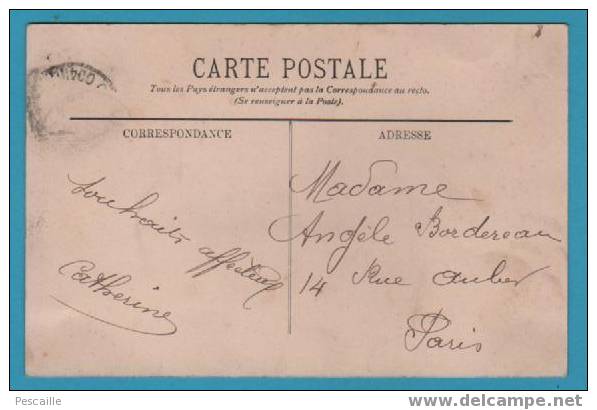 CARTE POSTALE
Tous les Pays étrangers n'acceptent pas la Correspondance au recto.
(Se renseigner à la Poste).
CORRESPONDANCE
ADRESSE
souhaits affectueux
Catherine
Madame
Angèle Bordereau
14 Rue Auber
Paris
Pescaille
www.delcampe.net